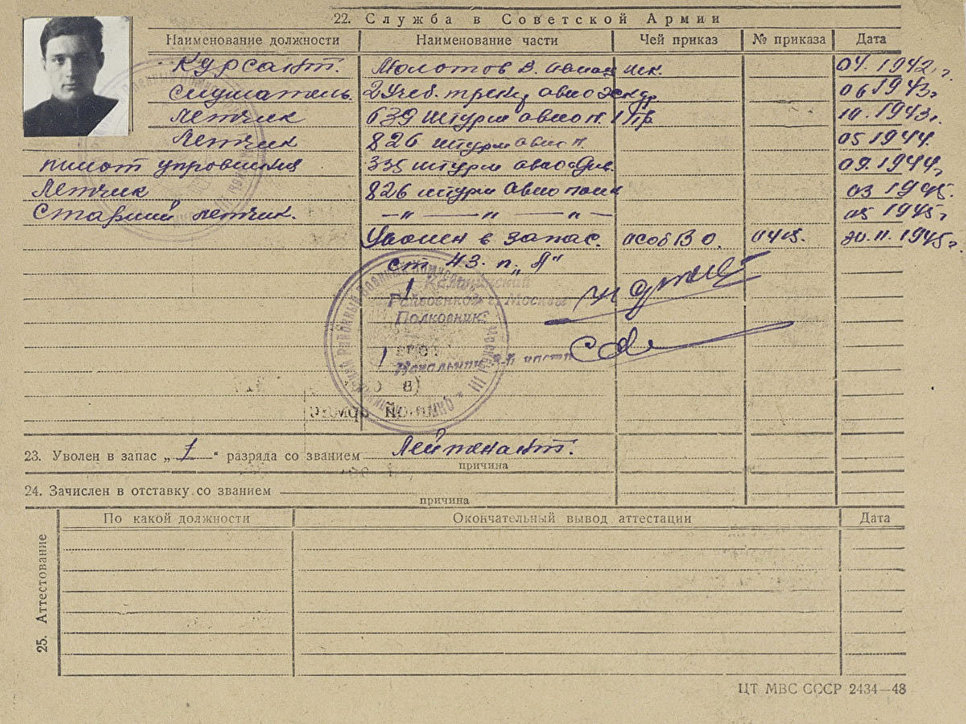 22. Служба в Советской Армии
Наименование должности Наименование части Чей приказ № приказа Дата
Курсант. Молотов В. авиац шк. 04.1942 г.
Слушатель. 2 Учеб. трен. авиоэскдр. 06 1943 г.
летчик 639 штурм авио п. 1 Пр. 10.1943 г.
летчик 826 штурм авио п. 05 1944.
пилот управления 335 штурм авио див. 09.1944 г.
Летчик 826 штурм авио полк 03 1945.
Старший летчик. —〃— —〃— —〃— 05 1945 г.
Уволен в запас. особ В О. 0413. 20.11.1945 г.
ст 43. п. „А"
Райвоенком г. Москвы
Полковник
Начальник 2-й части
23. Уволен в запас „1" разряда со званием Лейтенант.
причина
24. Зачислен в отставку со званием
причина
25. Аттестование
По какой должности Окончательный вывод аттестации Дата
ЦТ МВС СССР 2434—48